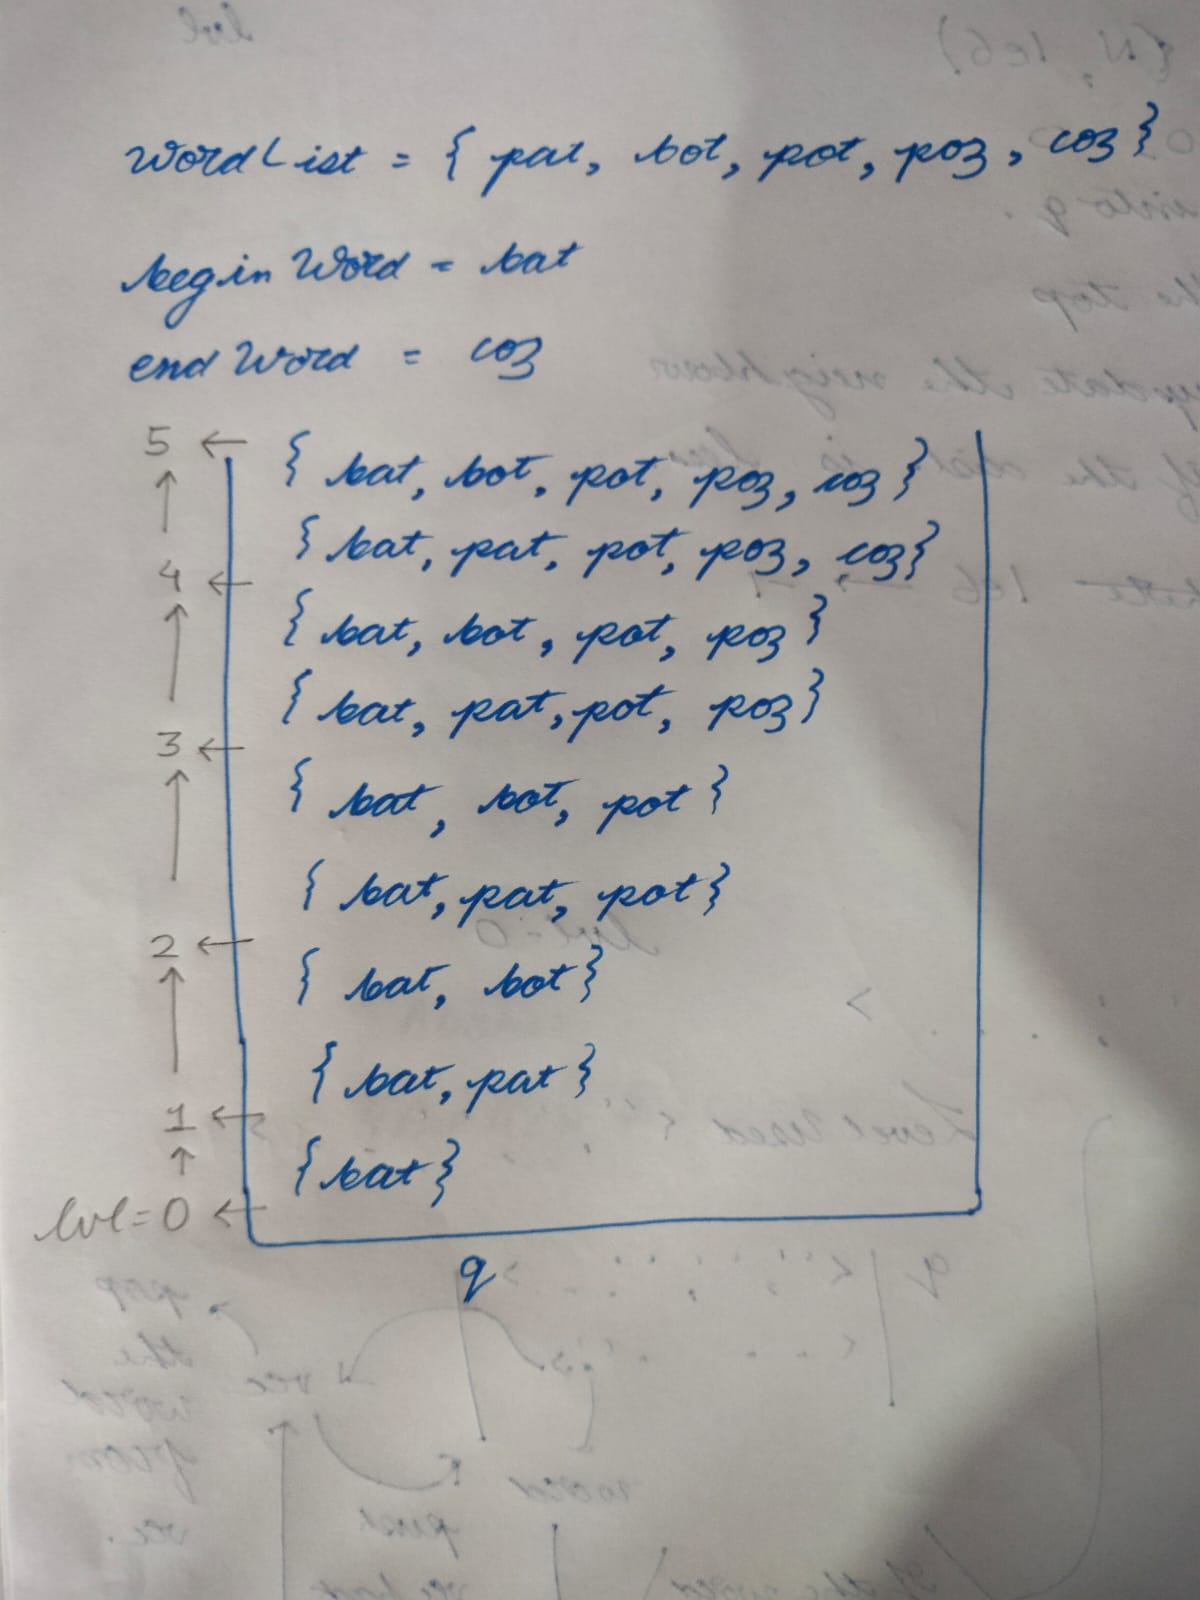 wordList = { pat, bot, pot, poz, coz }
begin Word = bat
end Word = coz
5 ← { bat, bot, pot, poz, coz }
{ bat, pat, pot, poz, coz }
4 ←
{ bat, bot, pot, poz }
{ bat, pat, pot, poz }
3 ←
{ bat, bot, pot }
{ bat, pat, pot }
2 ←
{ bat, bot }
{ bat, pat }
1 ←
{ bat }
lvl = 0 ←
q